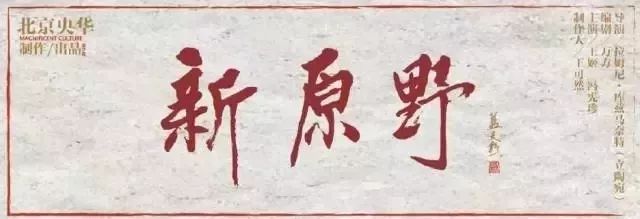 北京央华
MAGNIFICENT CULTURE
制作/出品
新原野
蓝天野
导演 拉姆尼·库兹马奈特（立陶宛）
编剧 万方
主演 王姬 冯宪珍
制作人 王可然